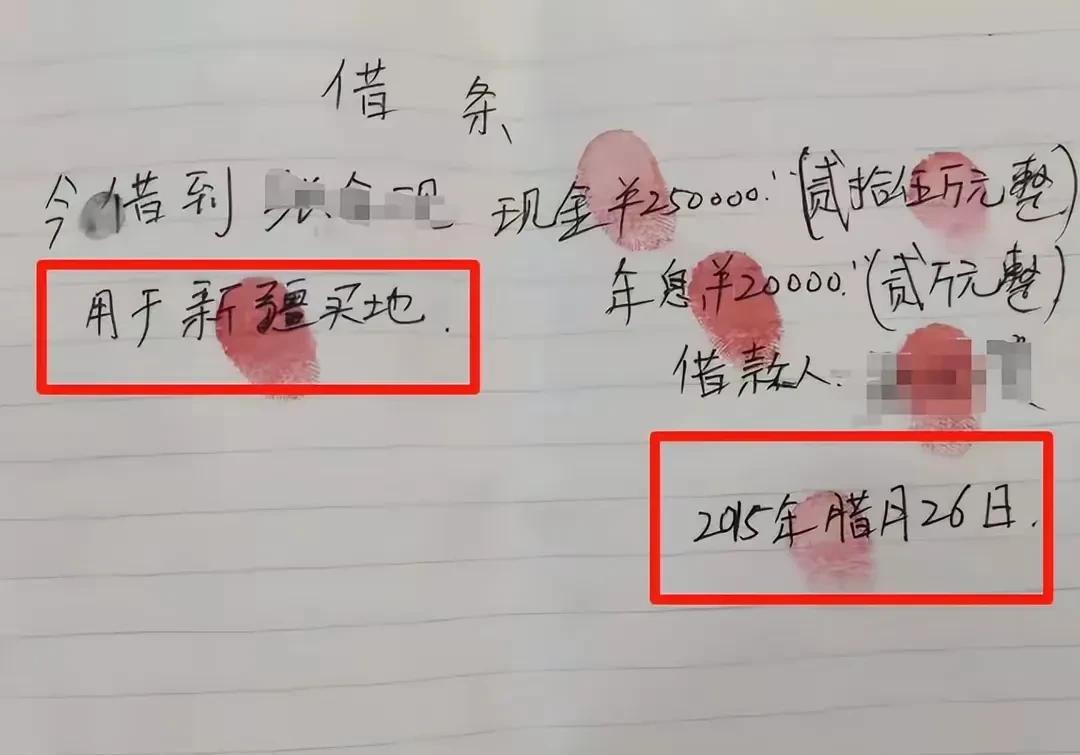 借条
今借到 现金¥250000.(贰拾伍万元整)
年息¥20000.(贰万元整)
用于新疆买地.
借款人:
2015年腊月26日.